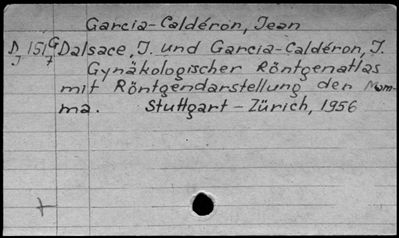 Garcia-Caldéron, Jean
D 151 G Dalsace, J. und Garcia-Caldéron, J.
J 7 Gynäkologischer Röntgenatlas
mit Röntgendarstellung der Mam-
ma. Stuttgart - Zürich, 1956
+